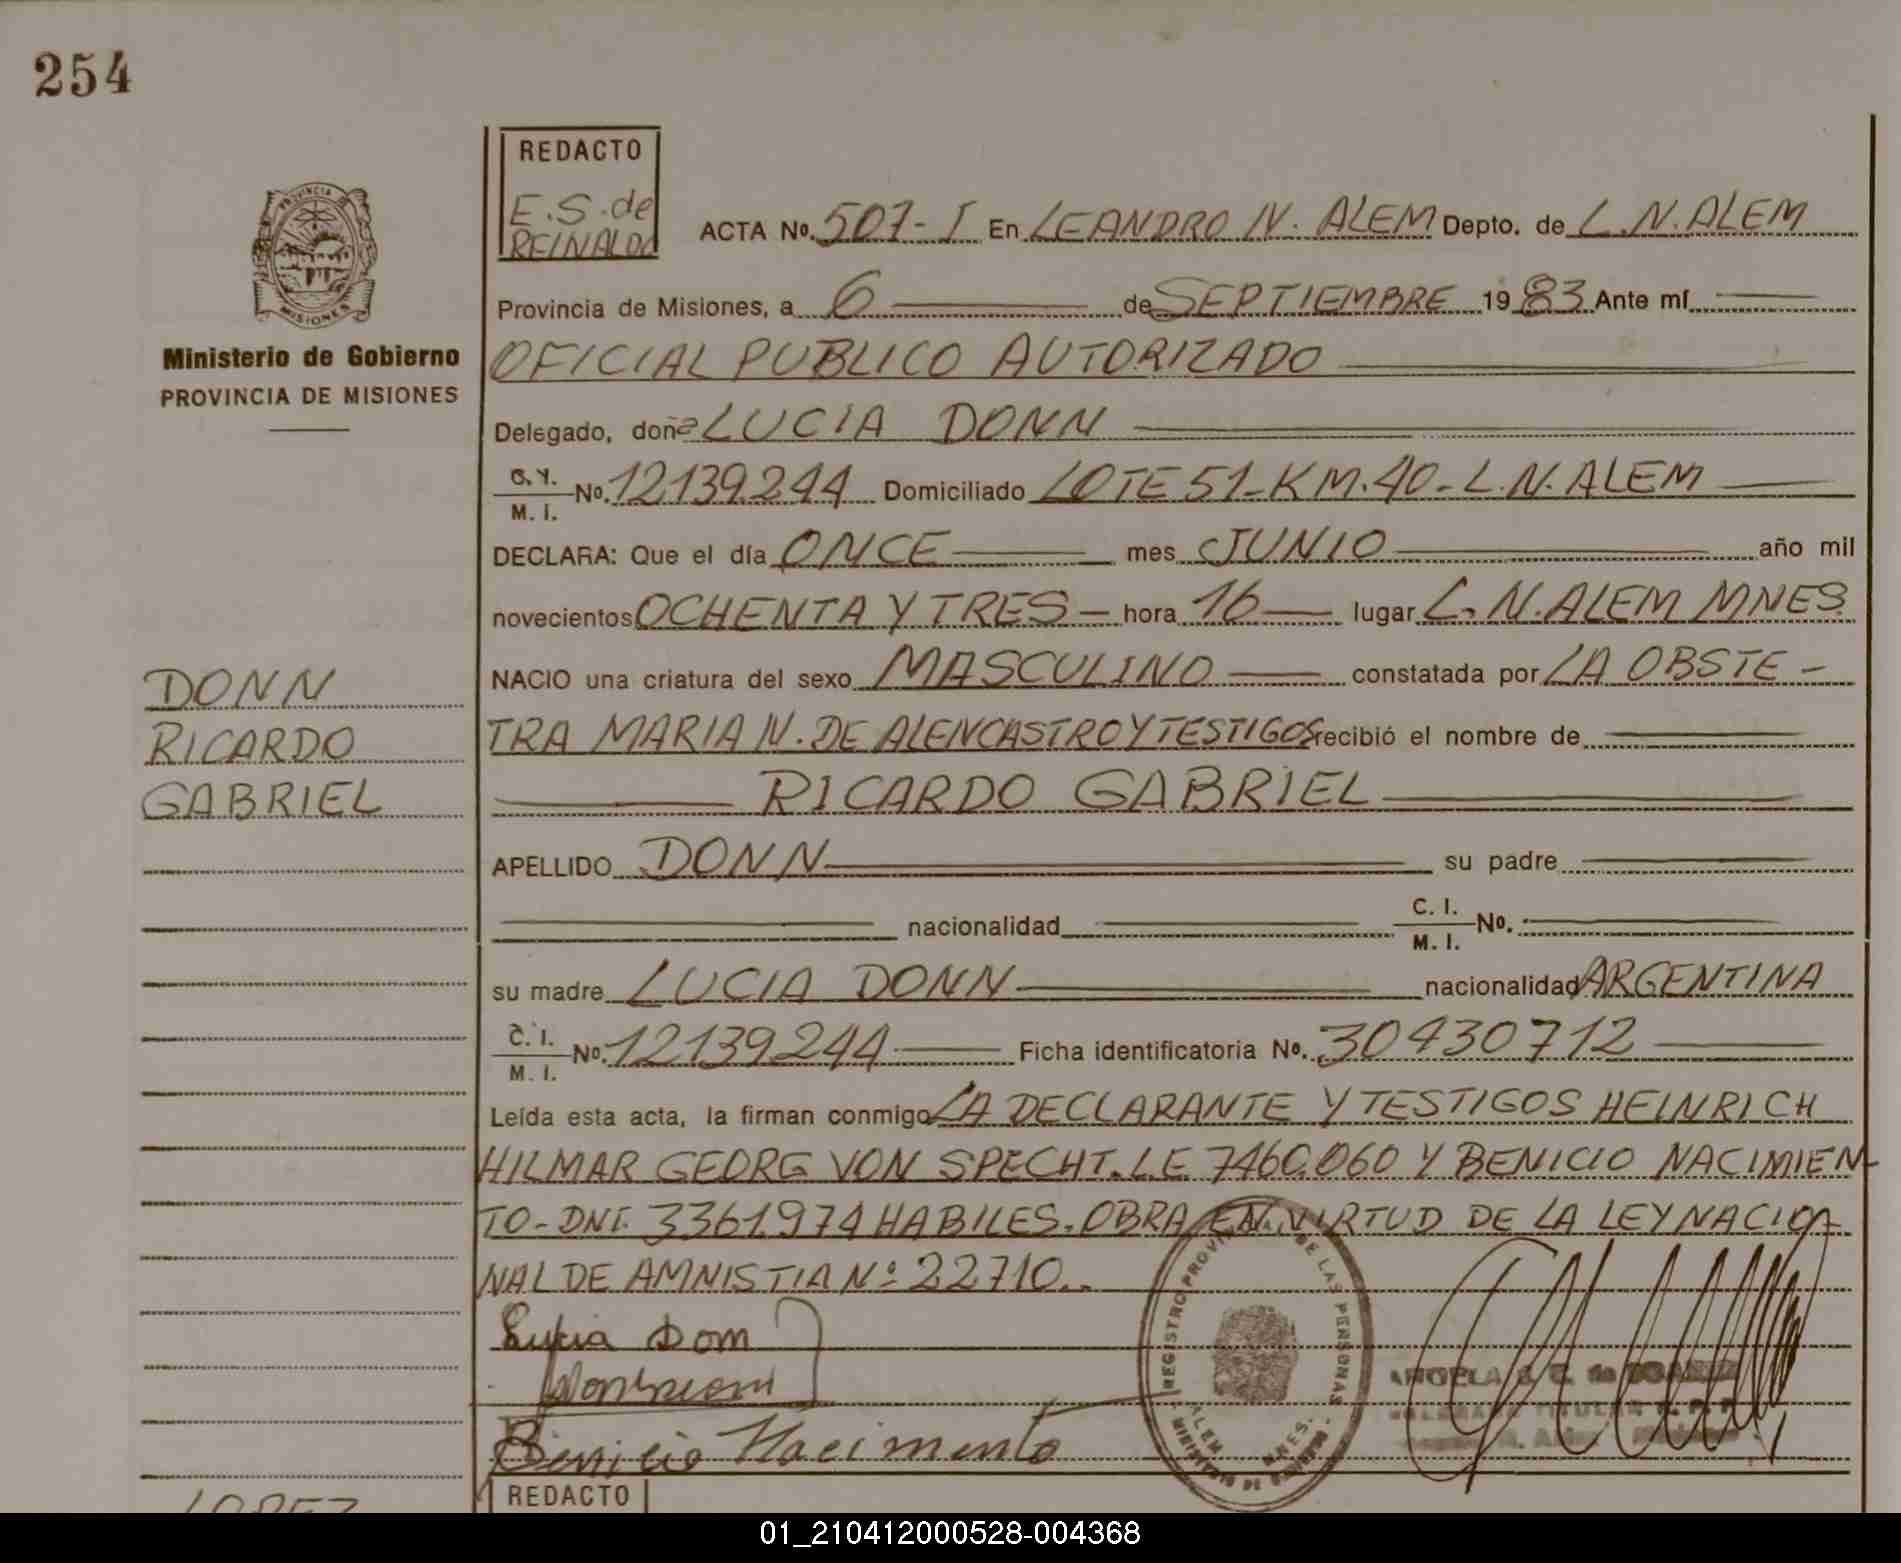 254
REDACTO
E.S. de
REINALDO
PROVINCIA
MISIONES
Ministerio de Gobierno
PROVINCIA DE MISIONES
ACTA No. 507-I En LEANDRO N. ALEM Depto. de L.N.ALEM
Provincia de Misiones, a 6 de SEPTIEMBRE 1983 Ante mí
OFICIAL PUBLICO AUTORIZADO
Delegado, doña LUCIA DONN
M. I. No. 12139244 Domiciliado LOTE 51-KM.40-L.N.ALEM
DECLARA: Que el día ONCE mes JUNIO año mil
novecientos OCHENTA Y TRES hora 16 lugar L.N.ALEM MNES.
NACIO una criatura del sexo MASCULINO constatada por LA OBSTE-
TRA MARIA N. DE ALENCASTRO Y TESTIGOS recibió el nombre de
RICARDO GABRIEL
DONN
RICARDO
GABRIEL
APELLIDO DONN su padre
nacionalidad C. I. M. I. No.
su madre LUCIA DONN nacionalidad ARGENTINA
C. I. M. I. No. 12139244 Ficha identificatoria No. 30430712
Leída esta acta, la firman conmigo LA DECLARANTE Y TESTIGOS HEINRICH
HILMAR GEORG VON SPECHT.L.E 7460.060 Y BENICIO NACIMIEN-
TO-DNI. 3361.974 HABILES. OBRA EN VIRTUD DE LA LEY NACIO
NAL DE AMNISTIA Nº 22710..
Lucia Donn
Benicio Nacimento
REGISTRO PROVINCIAL DE LAS PERSONAS
ALEM MNES.
MINISTERIO DE GOBIERNO
ANGELA
TITULAR
LOPEZ
REDACTO
01_210412000528-004368